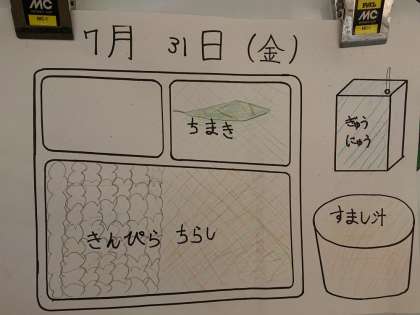 7月 31日 (金)
ちまき
ぎゅう
にゅう
きんぴら ちらし
すまし汁
MC
MC